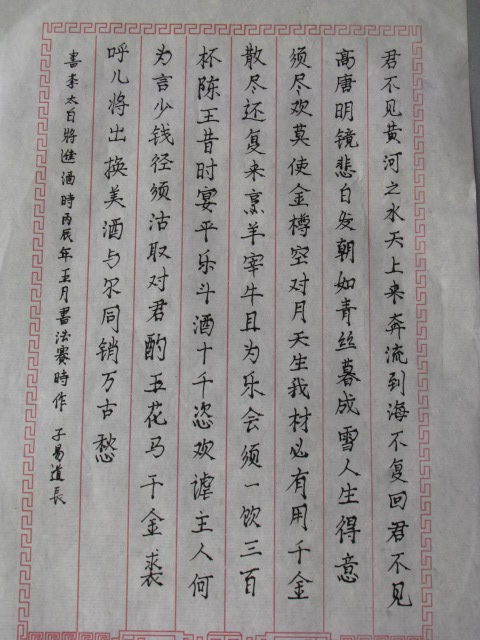 君不见黄河之水天上来奔流到海不复回君不见
高唐明镜悲白发朝如青丝暮成雪人生得意
须尽欢莫使金樽空对月天生我材必有用千金
散尽还复来烹羊宰牛且为乐会须一饮三百
杯陈王昔时宴平乐斗酒十千恣欢谑主人何
为言少钱径须沽取对君酌五花马千金裘
呼儿将出换美酒与尔同销万古愁
書李太白將進酒時丙辰年五月書法賽時作 子易道長